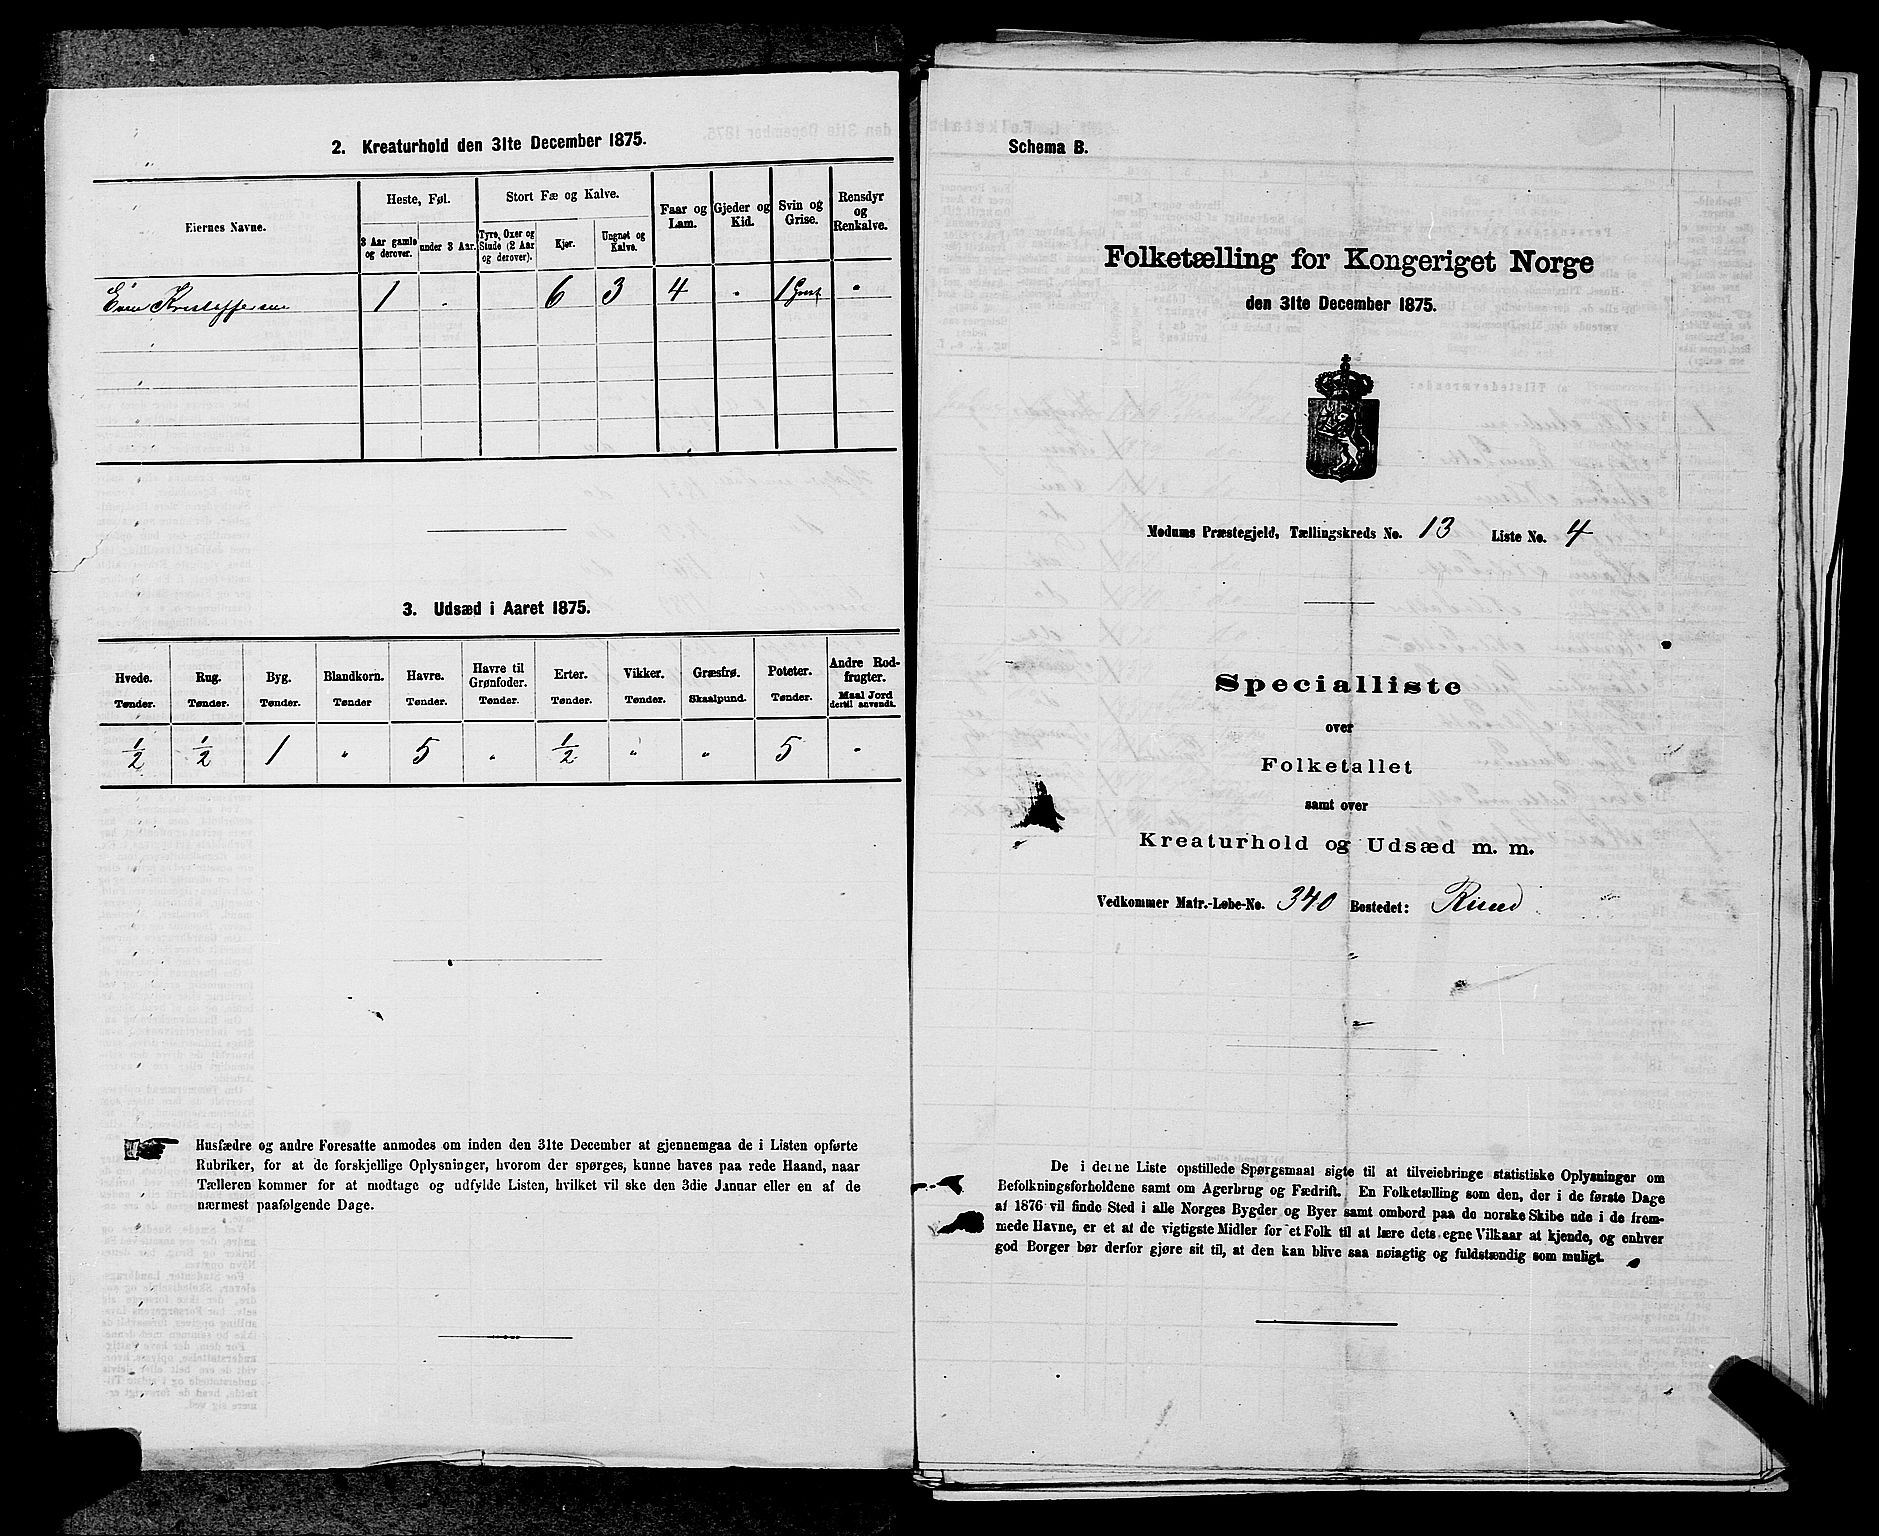 2. Kreaturhold den 31te December 1875.
Eiernes Navne.
Heste, Føl.
Stort Fæ og Kalve.
Faar og Lam.
Gjeder og Kid.
Svin og Grise.
Rensdyr og Renkalve.
3 Aar gamle og derover.
under 3 Aar.
Tyre, Oxer og Stude (2 Aar og derover).
Kjør.
Ungnøt og Kalve.
Even Kristoffersen 1 " 6 3 4 " 1 Gris "
3. Udsæd i Aaret 1875.
Hvede. Rug. Byg. Blandkorn. Havre. Havre til Grønfoder. Erter. Vikker. Græsfrø. Poteter. Andre Rodfrugter.
Tønder. Tønder. Tønder. Tønder Tønder. Tønder. Tønder. Tønder. Skaalpund. Tønder. Maal Jord dertil anvendt.
1/2 1/2 1 " 5 " 1/2 " " 5 "
Husfædre og andre Foresatte anmodes om inden den 31te December at gjennemgaa de i Listen opførte
Rubriker, for at de forskjellige Oplysninger, hvorom der spørges, kunne haves paa rede Haand, naar
Tælleren kommer for at modtage og udfylde Listen, hvilket vil ske den 3die Januar eller en af de
nærmest paafølgende Dage.
Schema B.
Folketælling for Kongeriget Norge
den 31te December 1875.
Modums Præstegjeld, Tællingskreds No. 13 Liste No. 4
Specialliste
over
Folketallet
samt over
Kreaturhold og Udsæd m. m.
Vedkommer Matr.-Løbe-No. 340 Bostedet:
De i denne Liste opstillede Spørgsmaal sigte til at tilveiebringe statistiske Oplysninger om
Befolkningsforholdene samt om Agerbrug og Fædrift. En Folketælling som den, der i de første Dage
af 1876 vil finde Sted i alle Norges Bygder og Byer samt ombord paa de norske Skibe ude i de frem-
mede Havne, er et af de vigtigste Midler for et Folk til at lære dets egne Vilkaar at kjende, og enhver
god Borger bør derfor gjøre sit til, at den kan blive saa nøiagtig og fuldstændig som muligt.